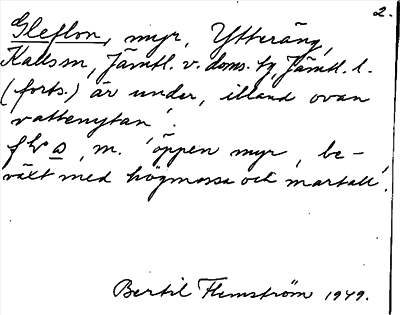 2.
Gleflon, myr, Ytteräng,
Kallsn, Jämtl. v. doms. tg, Jämtl. l.
(forts.) är under, illand ovan
vattenytan'.
flo̱, m. 'öppen myr, be-
växt med högmossa och martall'.
Bertil Flemström 1949.